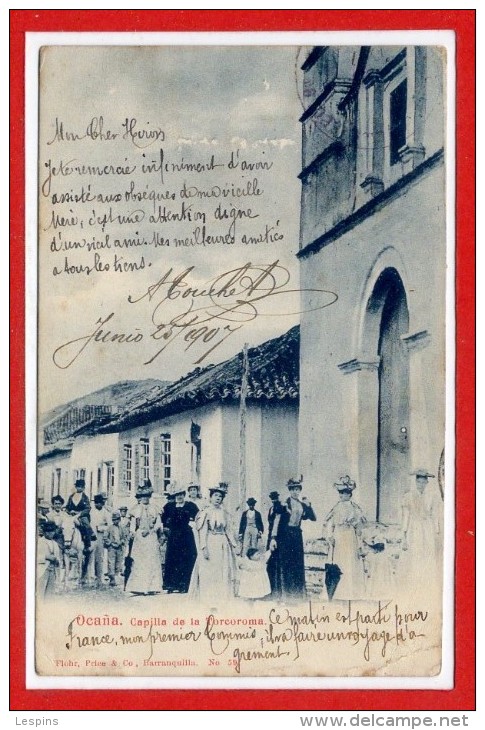 Mon Cher Heirs
Je te remercie infiniment d'avoir
assisté aux obsèques de ma vieille
Mère, c'est une attention digne
d'un vieil ami. Mes meilleures amatiés
a tous les tiens.
Junio 25/1907
Ocaña. Capilla de la Torcoroma. Ce matin est parti pour
France, mon premier Commis, il va faire un voyage d'a
grement
Flohr, Price & Co, Barranquilla. No 59
Lespins
www.delcampe.net